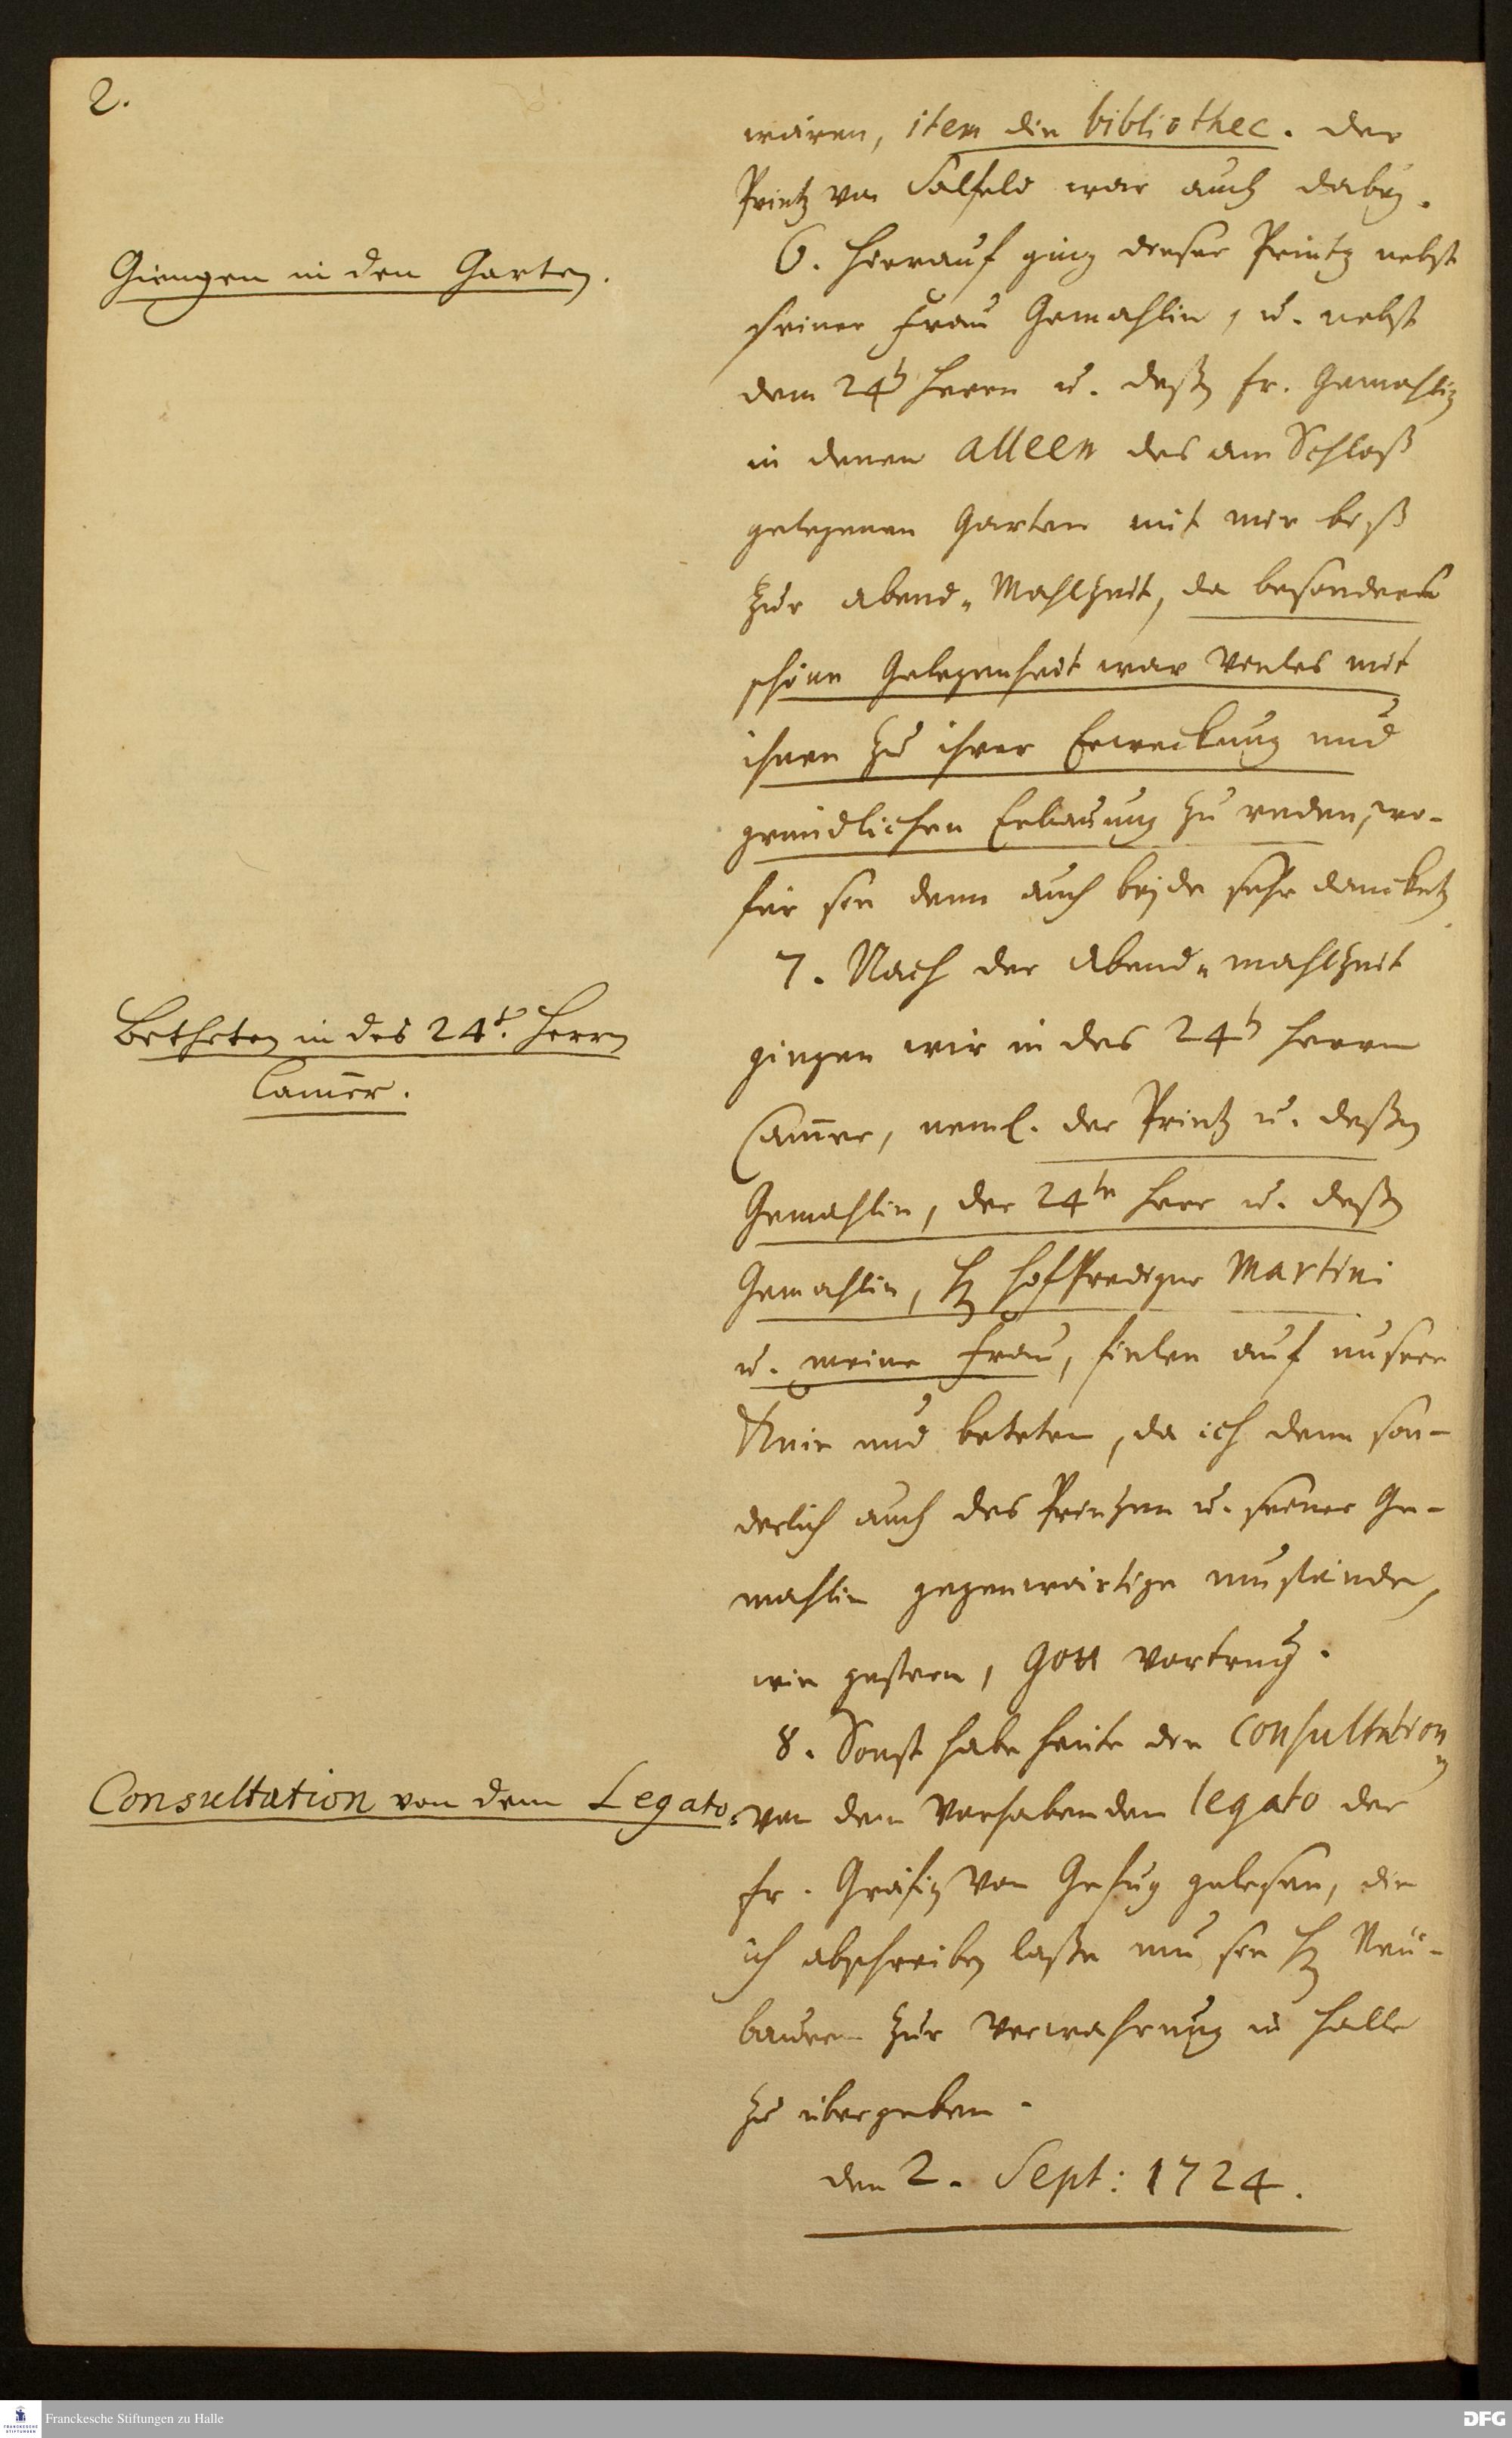 2.
wären, item die bibliothec. der
Printz von Salfeld war auch dabey.
Giengen in den Garten.
6. Hierauf ging dieser Printz nebst
seiner Frau Gemahlin, u. nebst
dem 24t Herrn u. deßen Fr. Gemahlin
in denen Alleen des am Schloß
gelegenen Garten mit mir biß
zur Abend-Mahlzeit, da besonders
schöne Gelegenheit war vieles mit
ihnen zu ihrer Erweckung und
gründlichen Erbauung zu reden, wo-
für sie denn auch beyde sehr dancketen
7. Nach der Abend-mahlzeit
Betheten in des 24t. Herrn
Cam̄er.
giengen wir in des 24t Herrn
Cam̄er, neml. der Printz u. deßen
Gemahlin, der 24te Herr u. deßen
Gemahlin, H. Hoffprediger Martini
u. meine Frau, fielen auf unsere
Knie und beteten, da ich denn son-
derlich auch des Printzen u. seiner Ge-
mahlin gegenwärtige umstände,
wie gestern, Gott vortrug.
8. Sonst habe heute die Consultation
Consultation von dem Legato.
von dem vorhabenden legato der
Fr. Gräfin von gelesen, die
ich abschreiben laße um sie H. Neu-
bauern zur Verwahrung in Halle
zu übergeben.
den 2. Sept: 1724.
Franckesche Stiftungen zu Halle
DFG